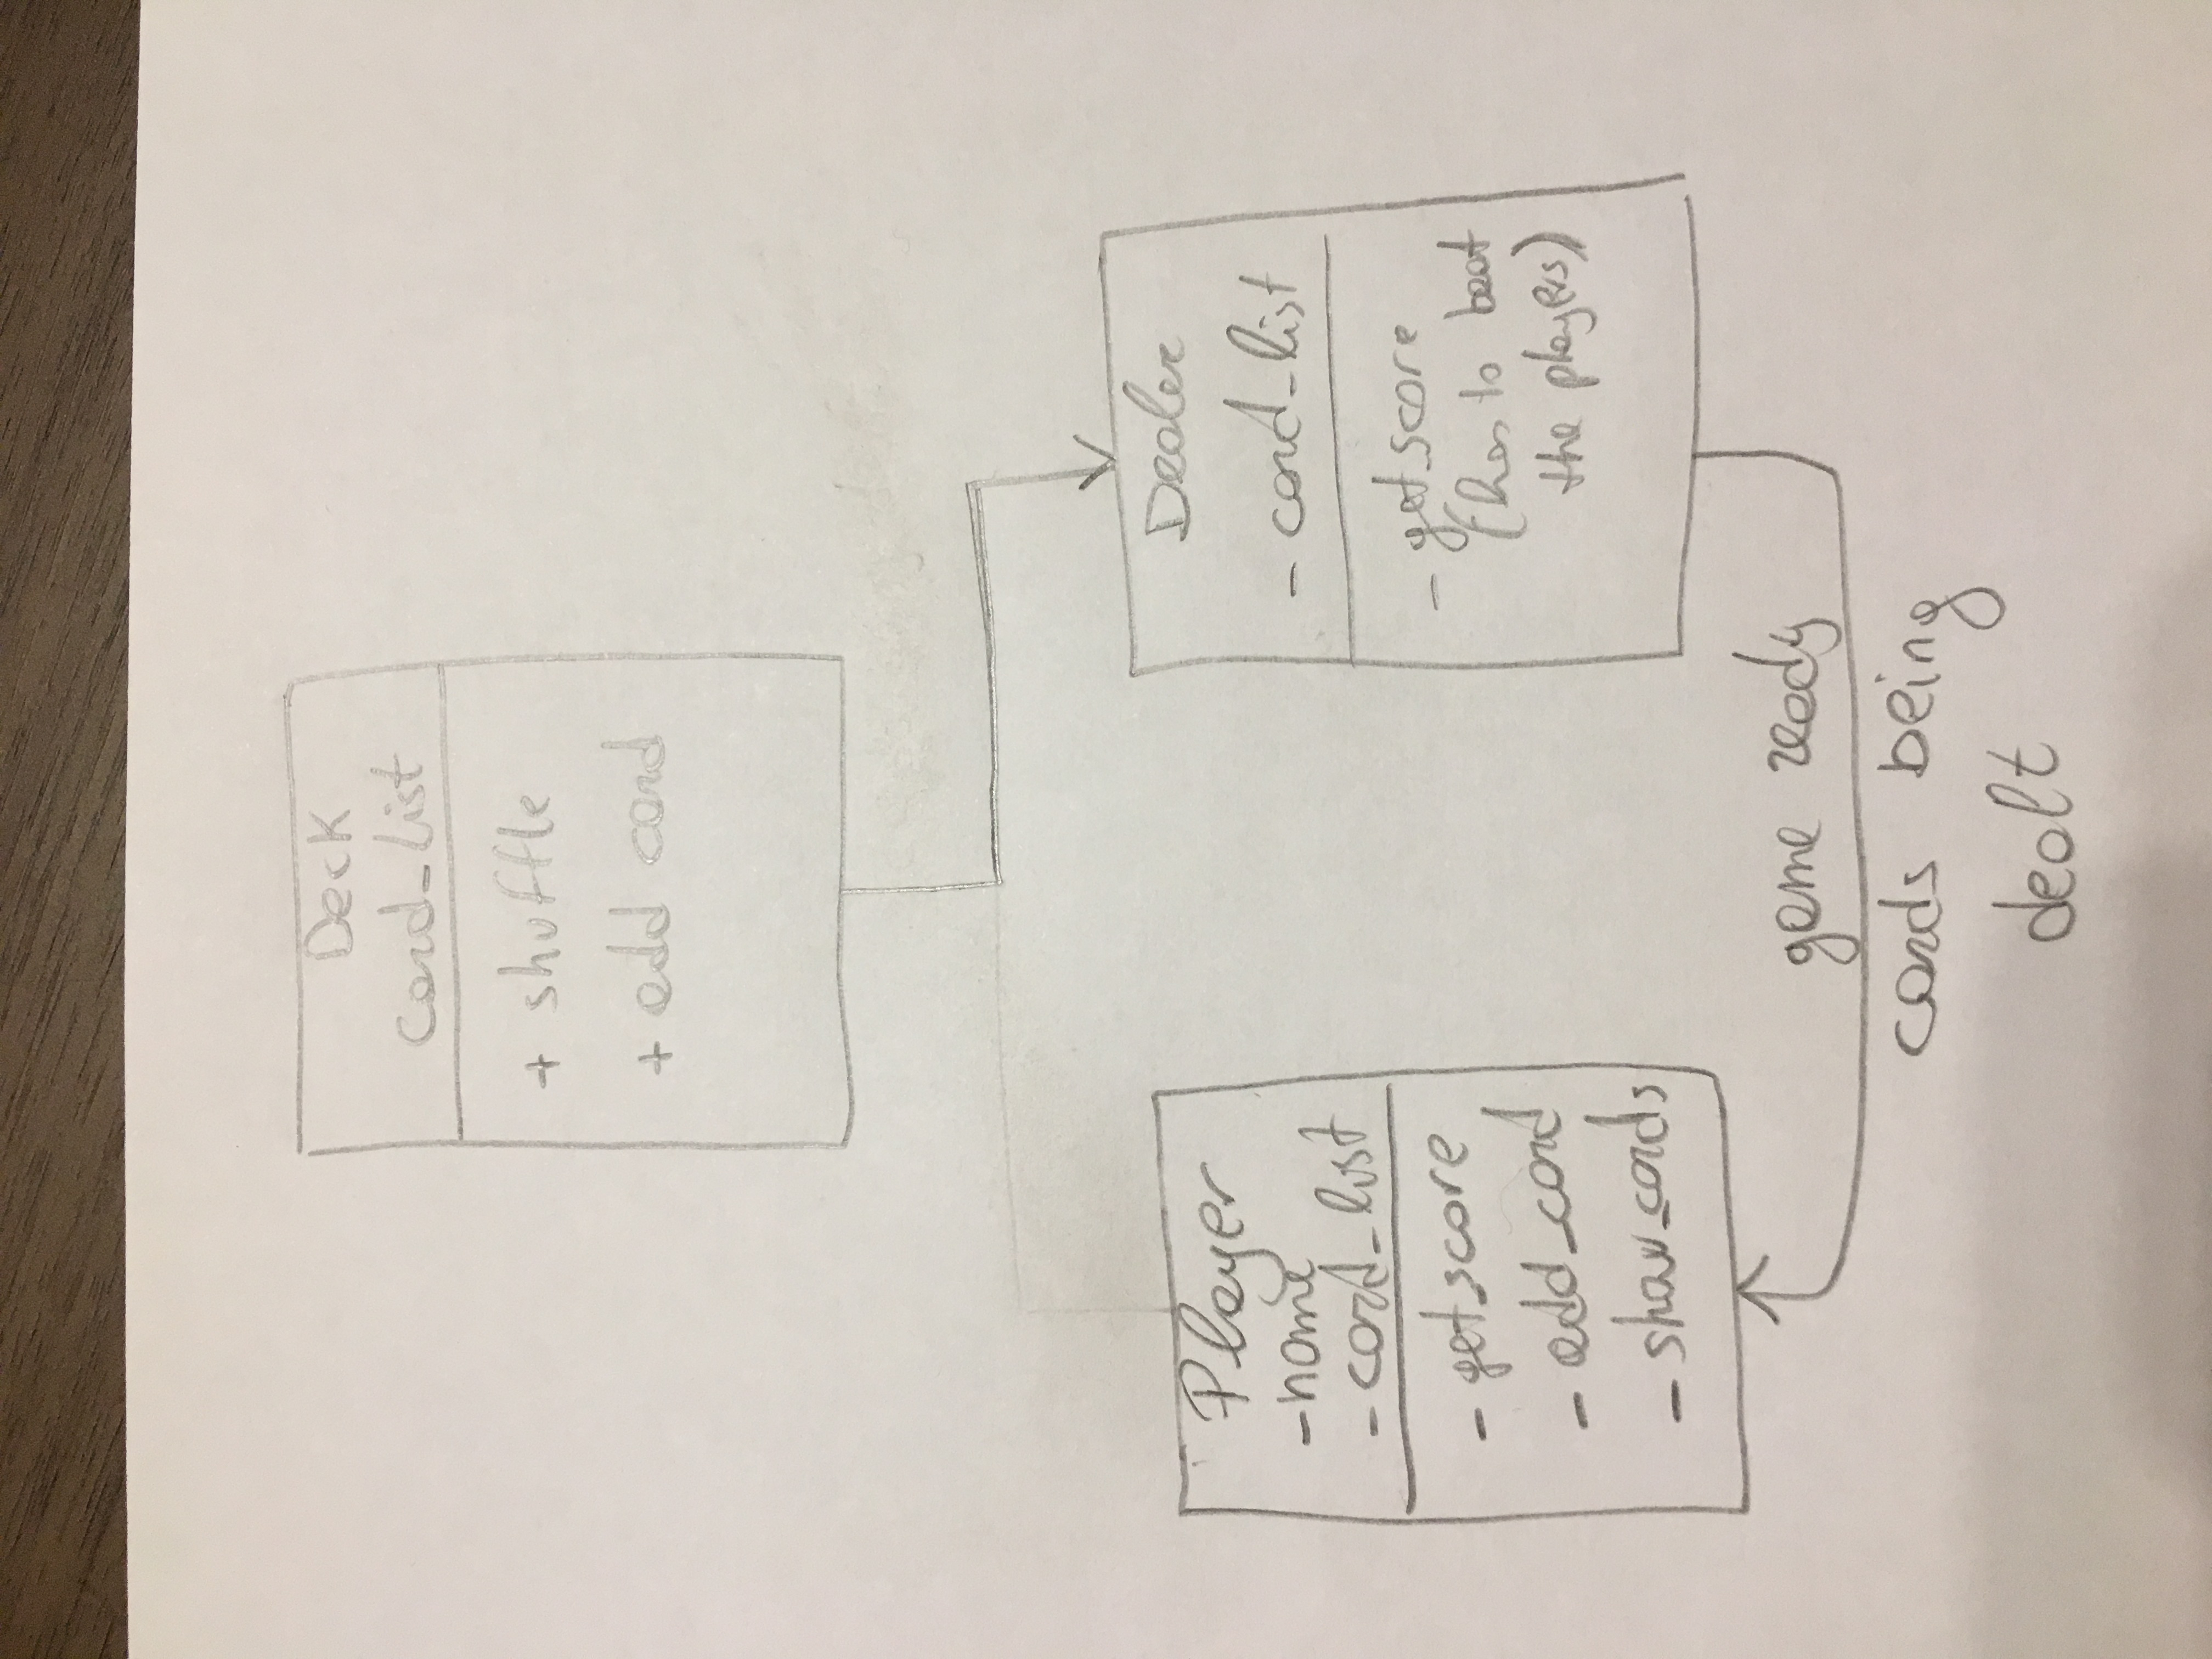 Deck
card_list
+ shuffle
+ add card
Player
- name
- card_list
- get_score
- add_card
- show_cards
Dealer
- card_list
- get_score
(has to beat
the players)
game ready
cards being
dealt